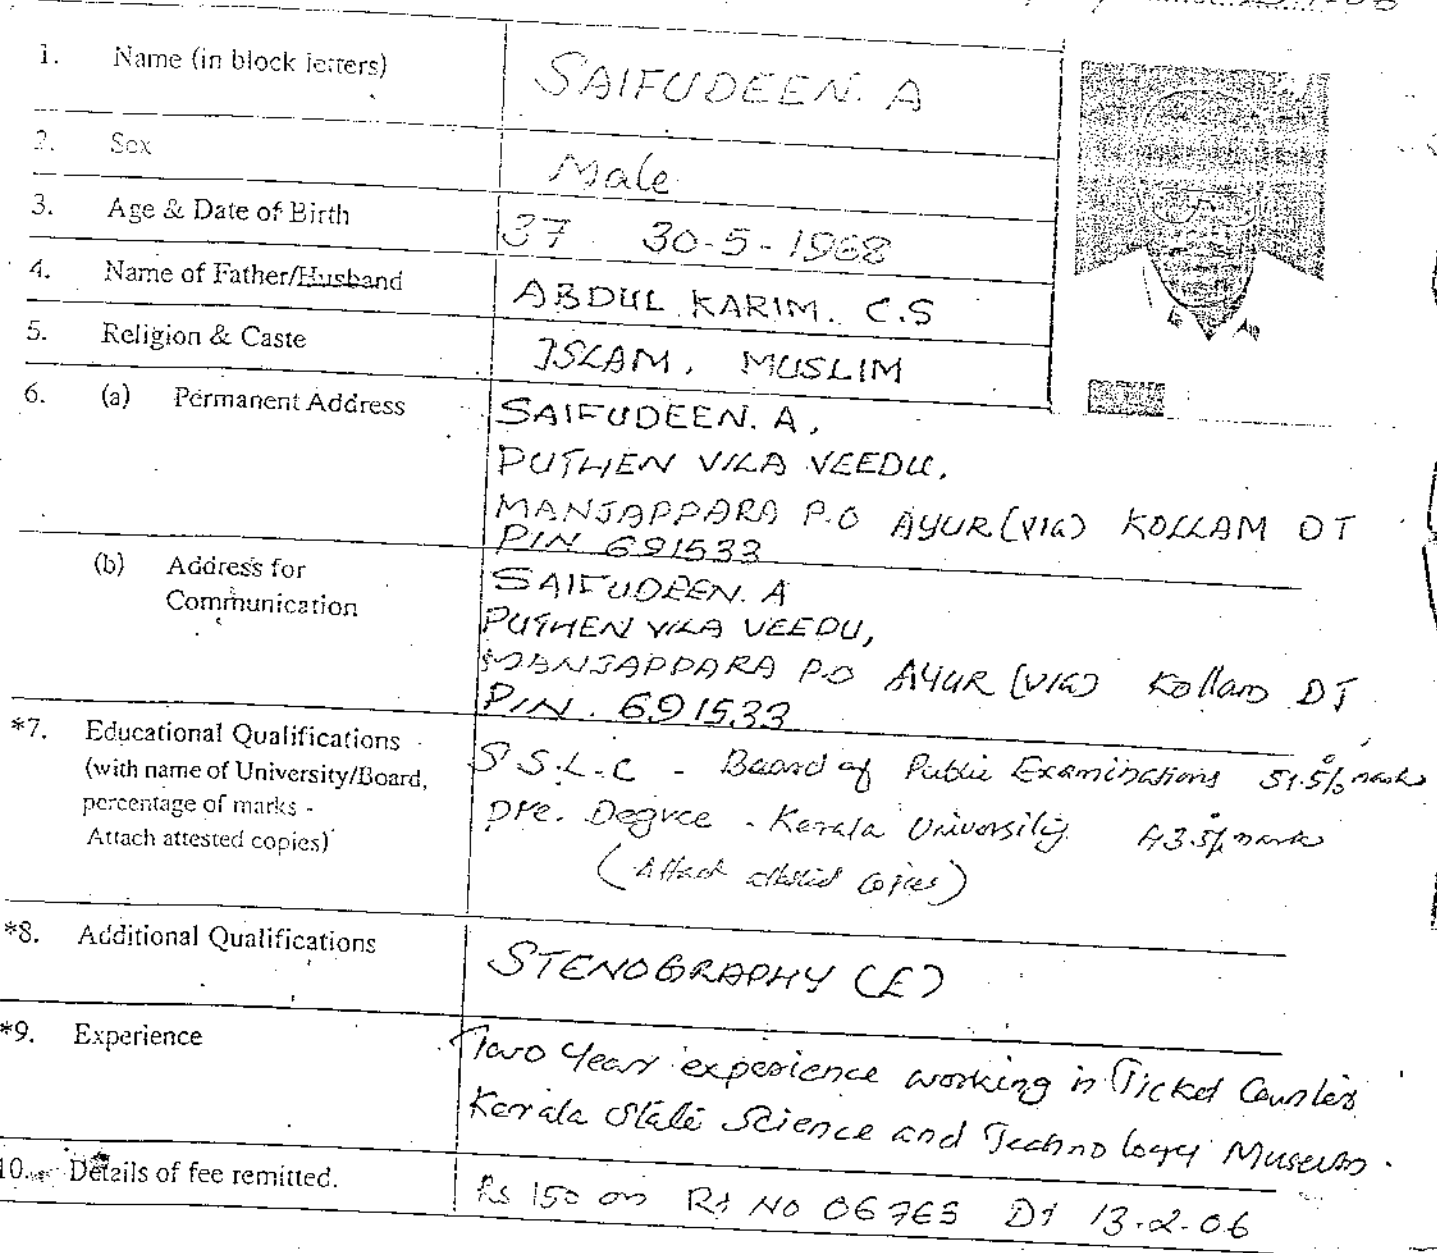 1. Name (in block letters) SAIFUDEEN. A
2. Sex Male
3. Age & Date of Birth 37 30-5-1968
4. Name of Father/Husband ABDUL KARIM. C.S
5. Religion & Caste ISLAM, MUSLIM
6. (a) Permanent Address SAIFUDEEN. A,
PUTHEN VILA VEEDU,
MANJAPPARA P.O AYUR (VIA) KOLLAM DT
PIN 691533
(b) Address for Communication SAIFUDEEN. A
PUTHEN VILA VEEDU,
MANJAPPARA P.O AYUR (VIA) Kollam DT
PIN. 691533
*7. Educational Qualifications
(with name of University/Board,
percentage of marks -
Attach attested copies)
S.S.L.C - Board of Public Examinations 51.5% mark
Pre. Degree - Kerala University 43.5% mark
(Attach attested copies)
*8. Additional Qualifications STENOGRAPHY (E)
*9. Experience Two Year experience working in Ticket Counter
Kerala State Science and Technology Museum.
10. Details of fee remitted. Rs 150 on Rt No 06763 Dt 13.2.06